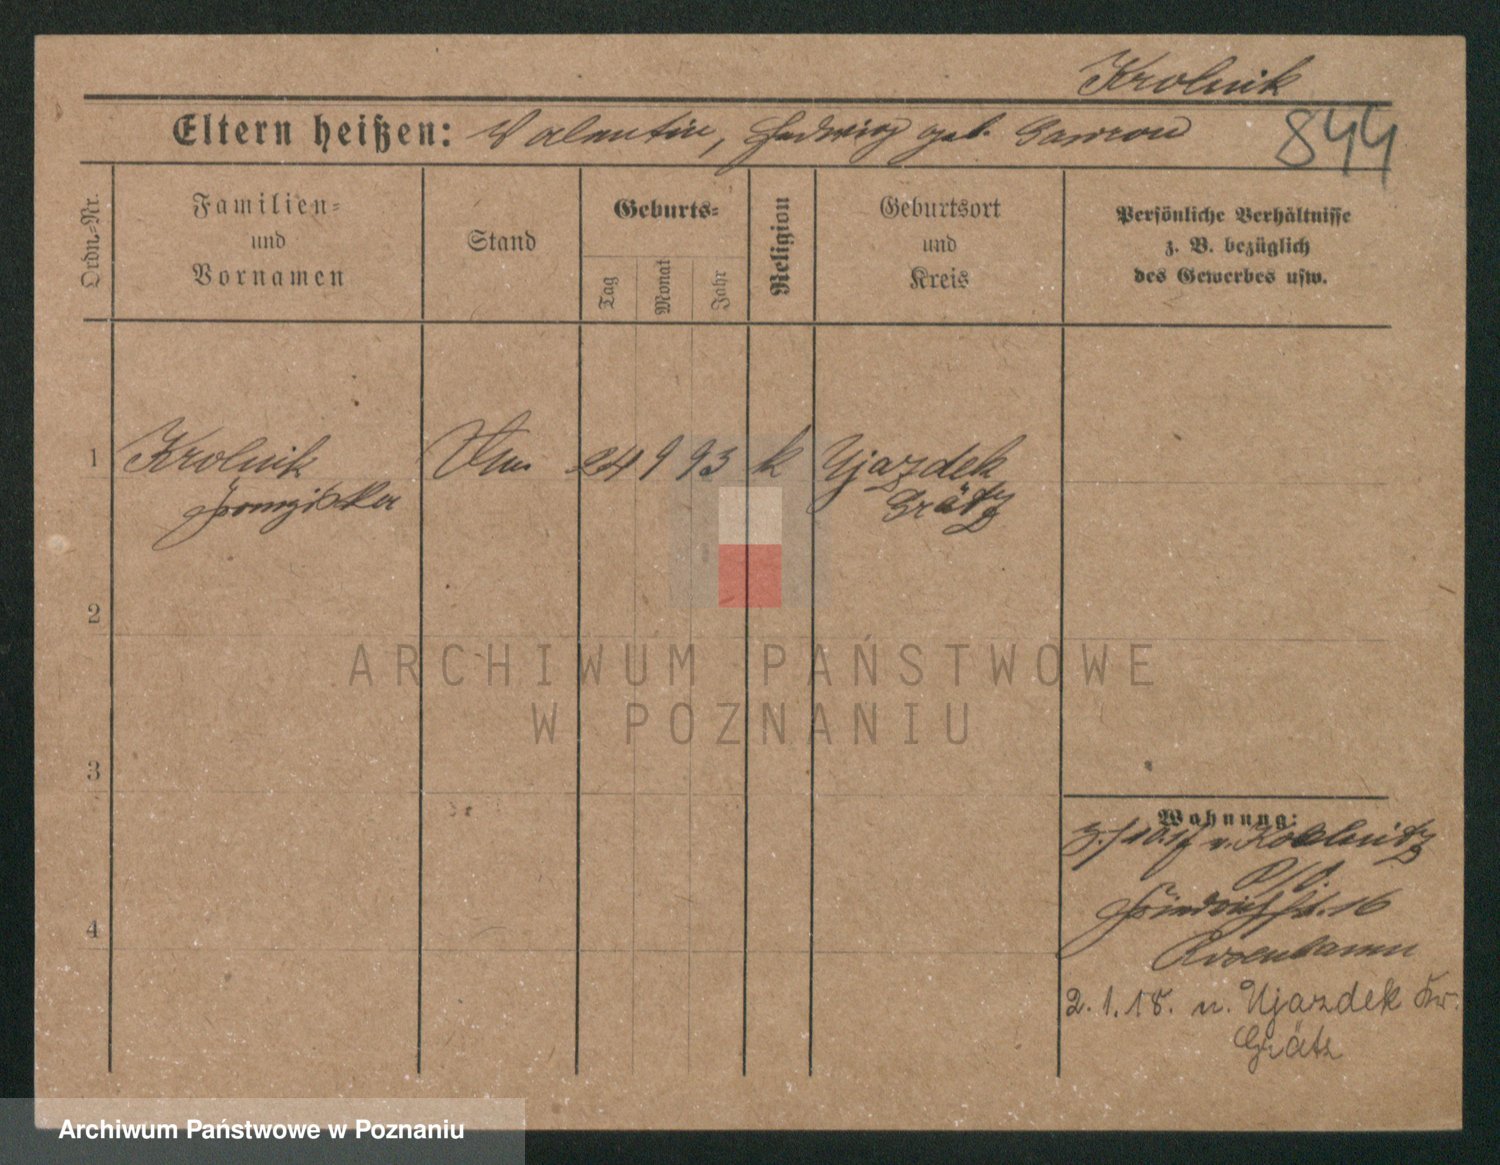 Krolnik
Eltern heißen: Valentin, Hedwig geb. Gawron
844
Ordn.-Nr.
Familien-
und
Vornamen
Stand
Geburts-
Tag
Monat
Jahr
Religion
Geburtsort
und
Kreis
Persönliche Verhältnisse
z. B. bezüglich
des Gewerbes usw.
1
Krolnik
Franziska
24 9 93 k Ujazdek
Grätz
2
ARCHIWUM PAŃSTWOWE
W POZNANIU
3
Wohnung:
v.
Friedrichst. 16
4
2.1.18. n. Ujazdek Kr.
Grätz
Archiwum Państwowe w Poznaniu